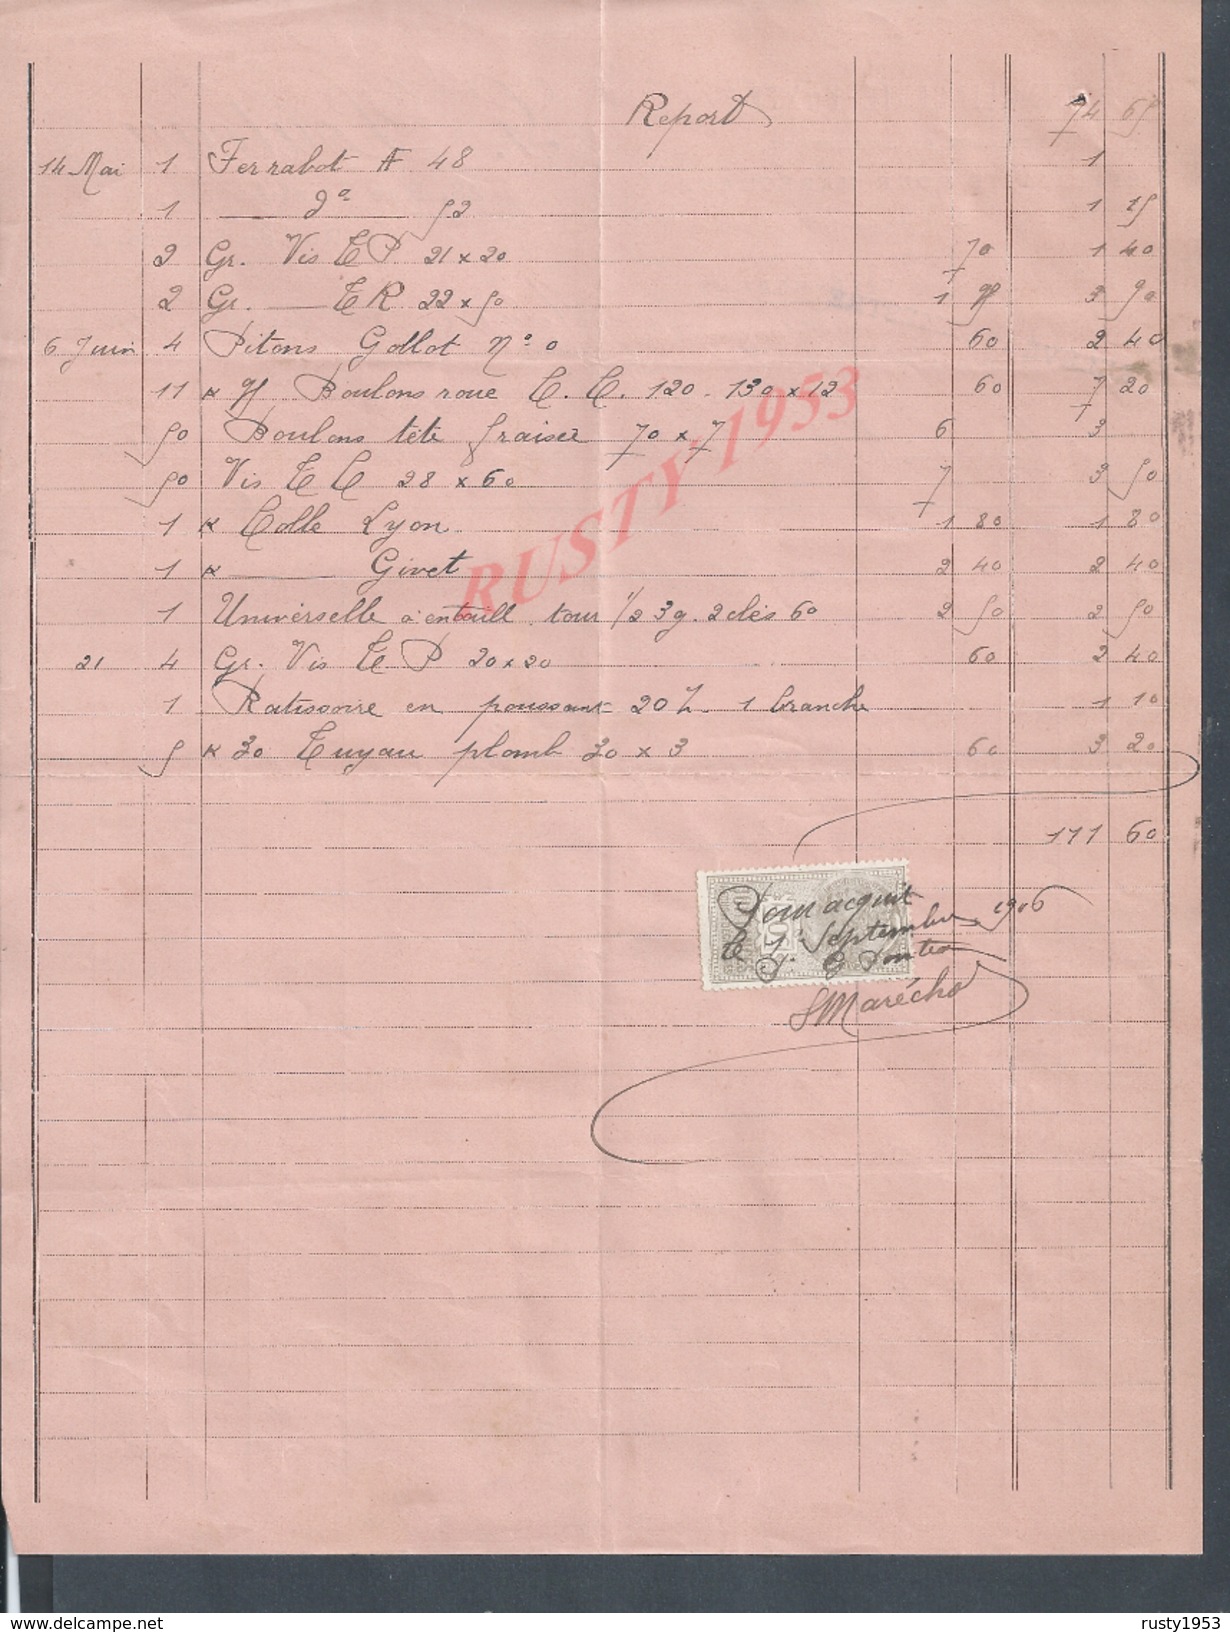 Report 74 65
14 Mai 1 Ferrabot AF 48 1
1 —— do —— 52 1 15
2 Gr. Vis T P 21 x 20 70 1 40
2 Gr. —— T R 22 x 50 1 95 3 90
6 Juin 4 Pitons Gollot No 0 60 2 40
11 K 95 Boulons roue T. C. 120 . 130 x 12 60 7 20
50 Boulons tête fraisée 70 x 7 6 3
50 Vis T C 28 x 60 7 3 50
1 K Colle Lyon 1 80 1 80
1 K —— Givet 2 40 2 40
1 Universelle à entaill. tour 1/2 3g. 2 clés 60 2 50 2 50
21 4 Gr. Vis T P 20 x 20 60 2 40
1 Ratissoire en poussant 20 1 branche 1 10
5 K 30 Tuyau plomb 30 x 3 60 3 20
111 60
Pour acquit
le 1er Septembre 1906
Maréchal
RUSTY 1953
delcampe.net
rusty1953